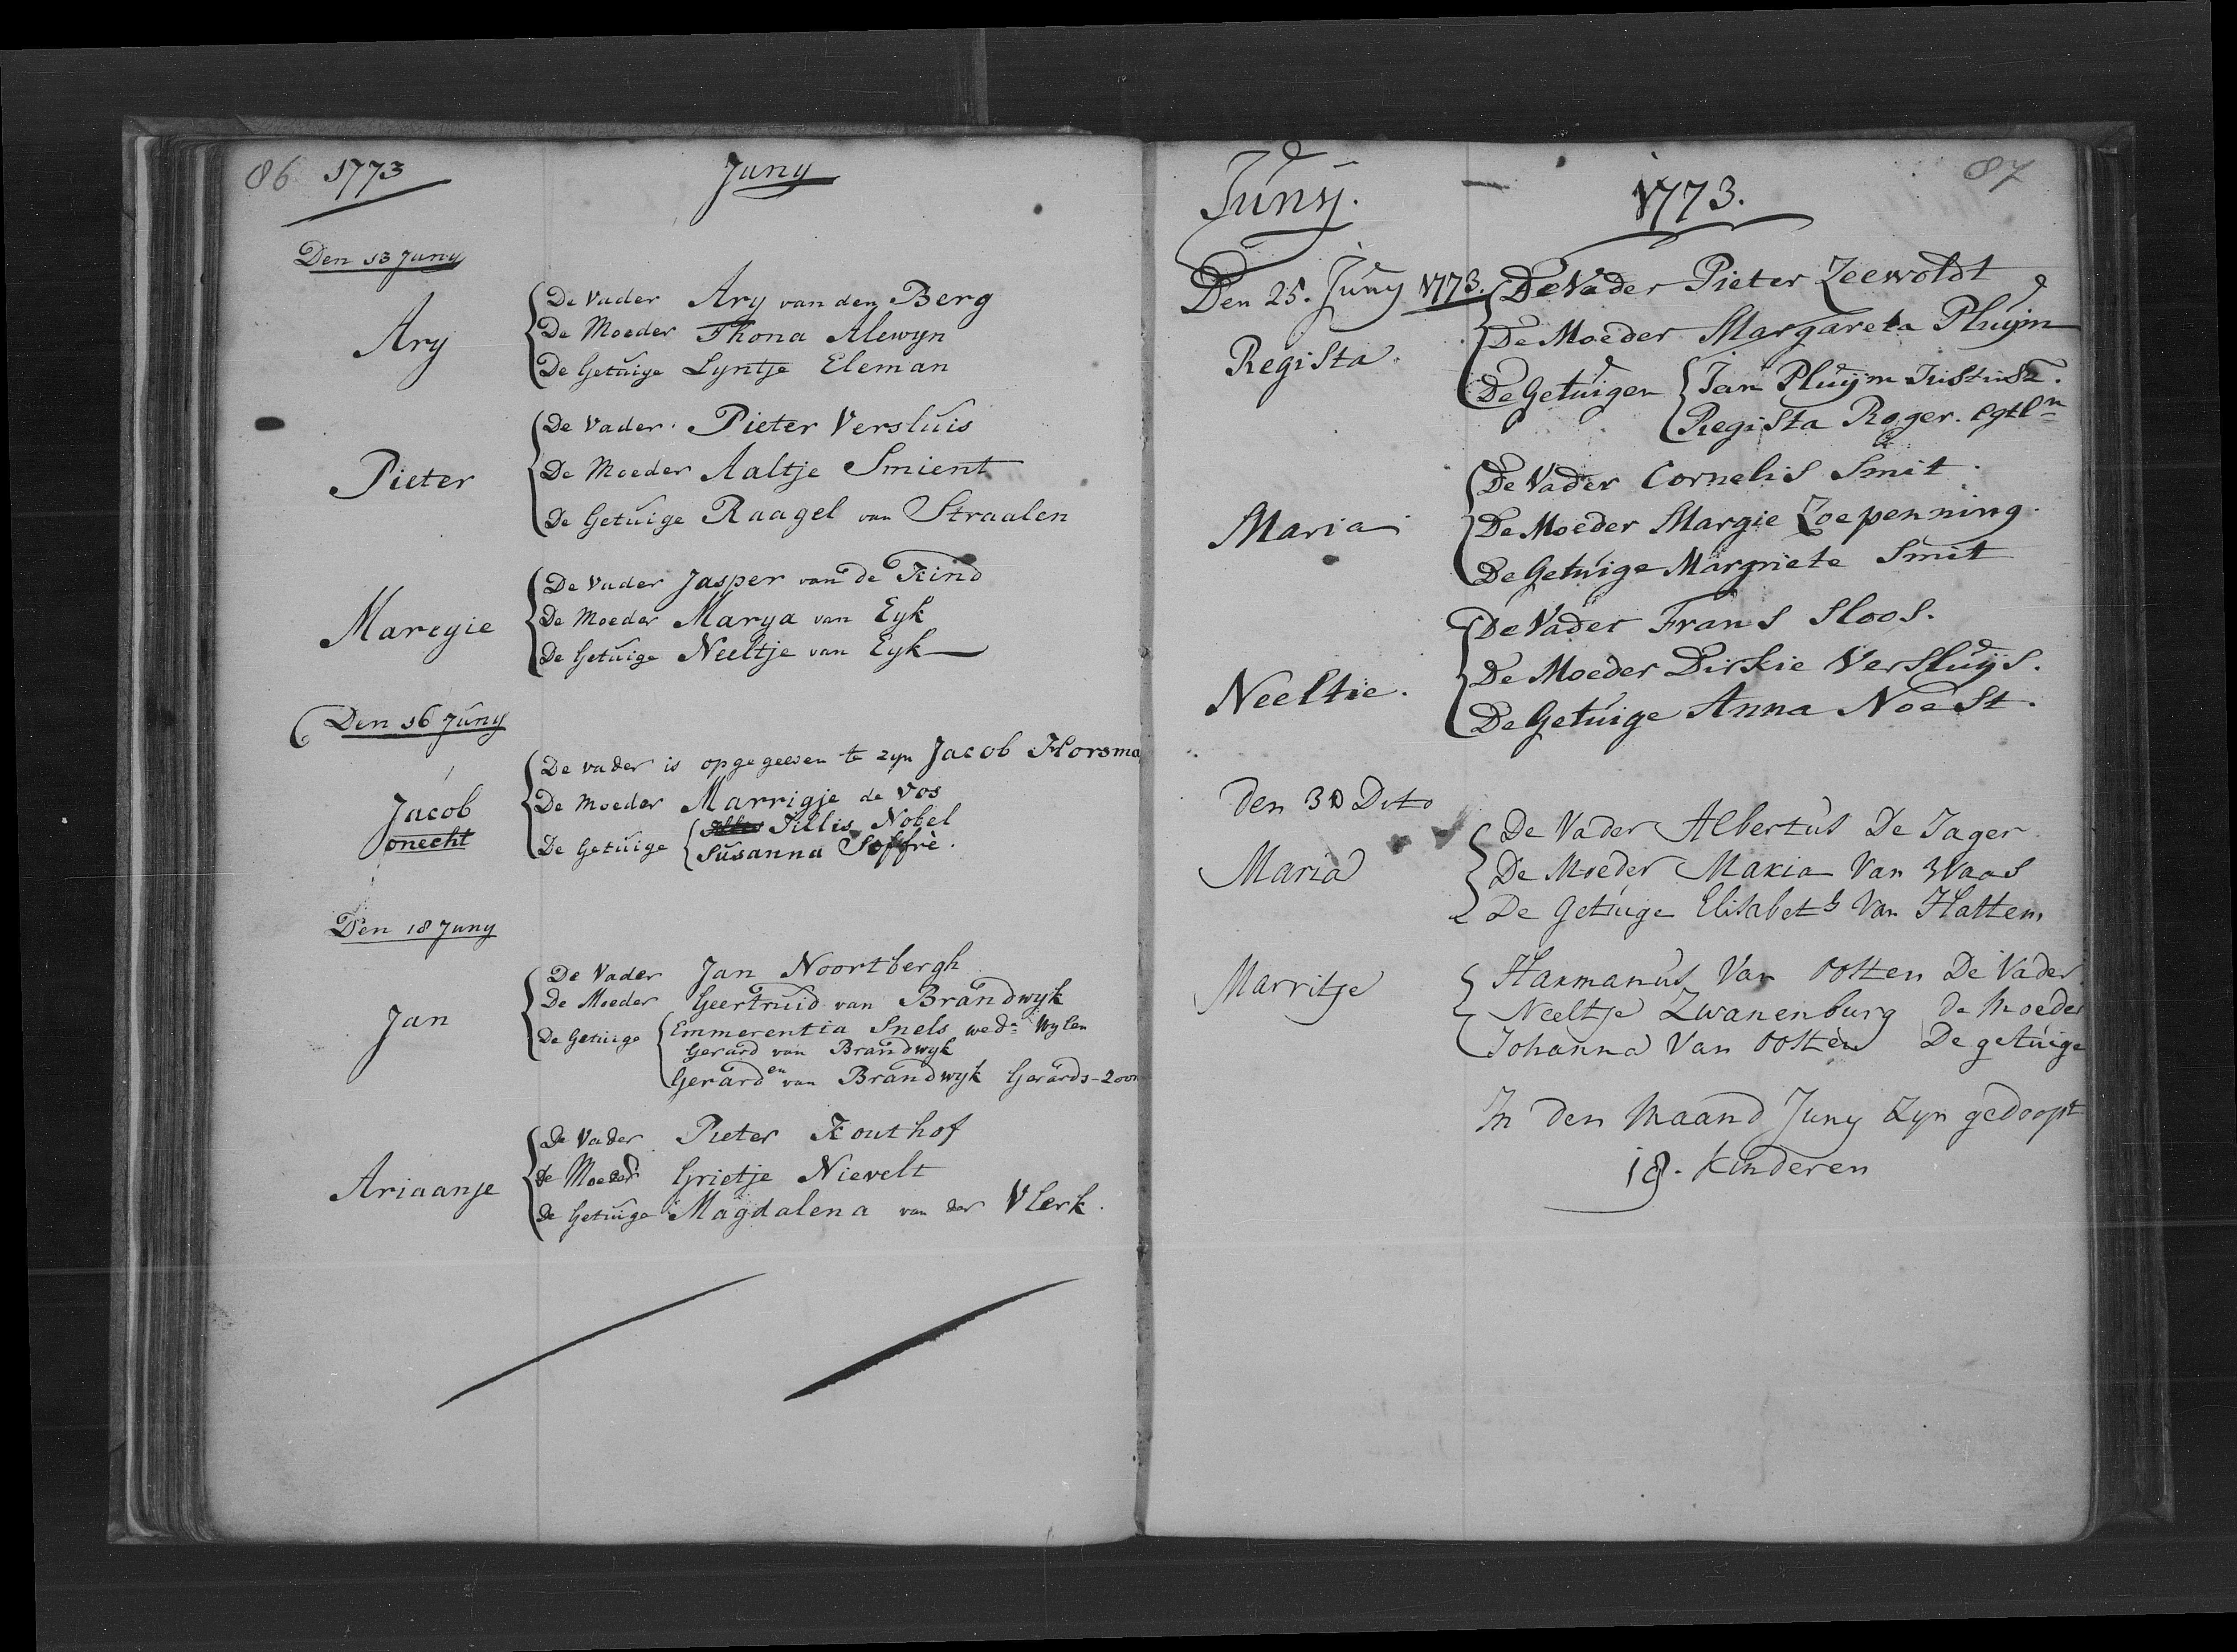 86 1773 Juny
Den 13 Juny
Ary
De Vader Ary van den Berg
De Moeder Thona Alewyn
De Getuige Lyntje Eleman
Pieter
De Vader Pieter Versluis
De Moeder Aaltje Smient
De Getuige Raagel van Straalen
Maregie
De Vader Jasper van de Kind
De Moeder Marya van Eyk
De Getuige Neeltje van Eyk
Den 16 Juny
Jacob
onecht
De vader is opgegeeven te zyn Jacob Horsma
De Moeder Marrigje de Vos
De Getuige Jillis Nobel
Susanna Soffrè.
Den 18 Juny
Jan
De Vader Jan Noortbergh
De Moeder Geertruid van Brandwyk
De Getuige Emmerentia Snels wede Wylen
Gerard van Brandwyk
en
Gerard van Brandwyk Gerards-zoon
Ariaanje
De Vader Pieter Kouthof
de Moeder Grietje Nievelt
de Getuige Magdalena van der Vlerk.
Juny. 1773. 87
Den 25. Juny 1773.
Regista.
De Vader Pieter Zeewoldt
De Moeder Margareta Pluijm
De Getuigen Jan Pluijm Justusz.
Regista Roger. Egtln
Maria
De Vader Cornelis Smit.
De Moeder Margie Zoepenning.
De Getuige Margriete Smit
Neeltie.
De Vader Frans Sloos.
De Moeder Dirkie Versluijs.
De Getuige Anna Noest.
den 30 Dito
Maria
De Vader Albertus De Jager
De Moeder Maria Van Waas
De Getuige Elisabeth Van Hattem
Marritje
Harmanus Van Oosten De Vader
Neeltje Zwanenburg de Moeder
Johanna Van Oosten De getuige
In den Maand Juny Zyn gedoopt
18. Kinderen